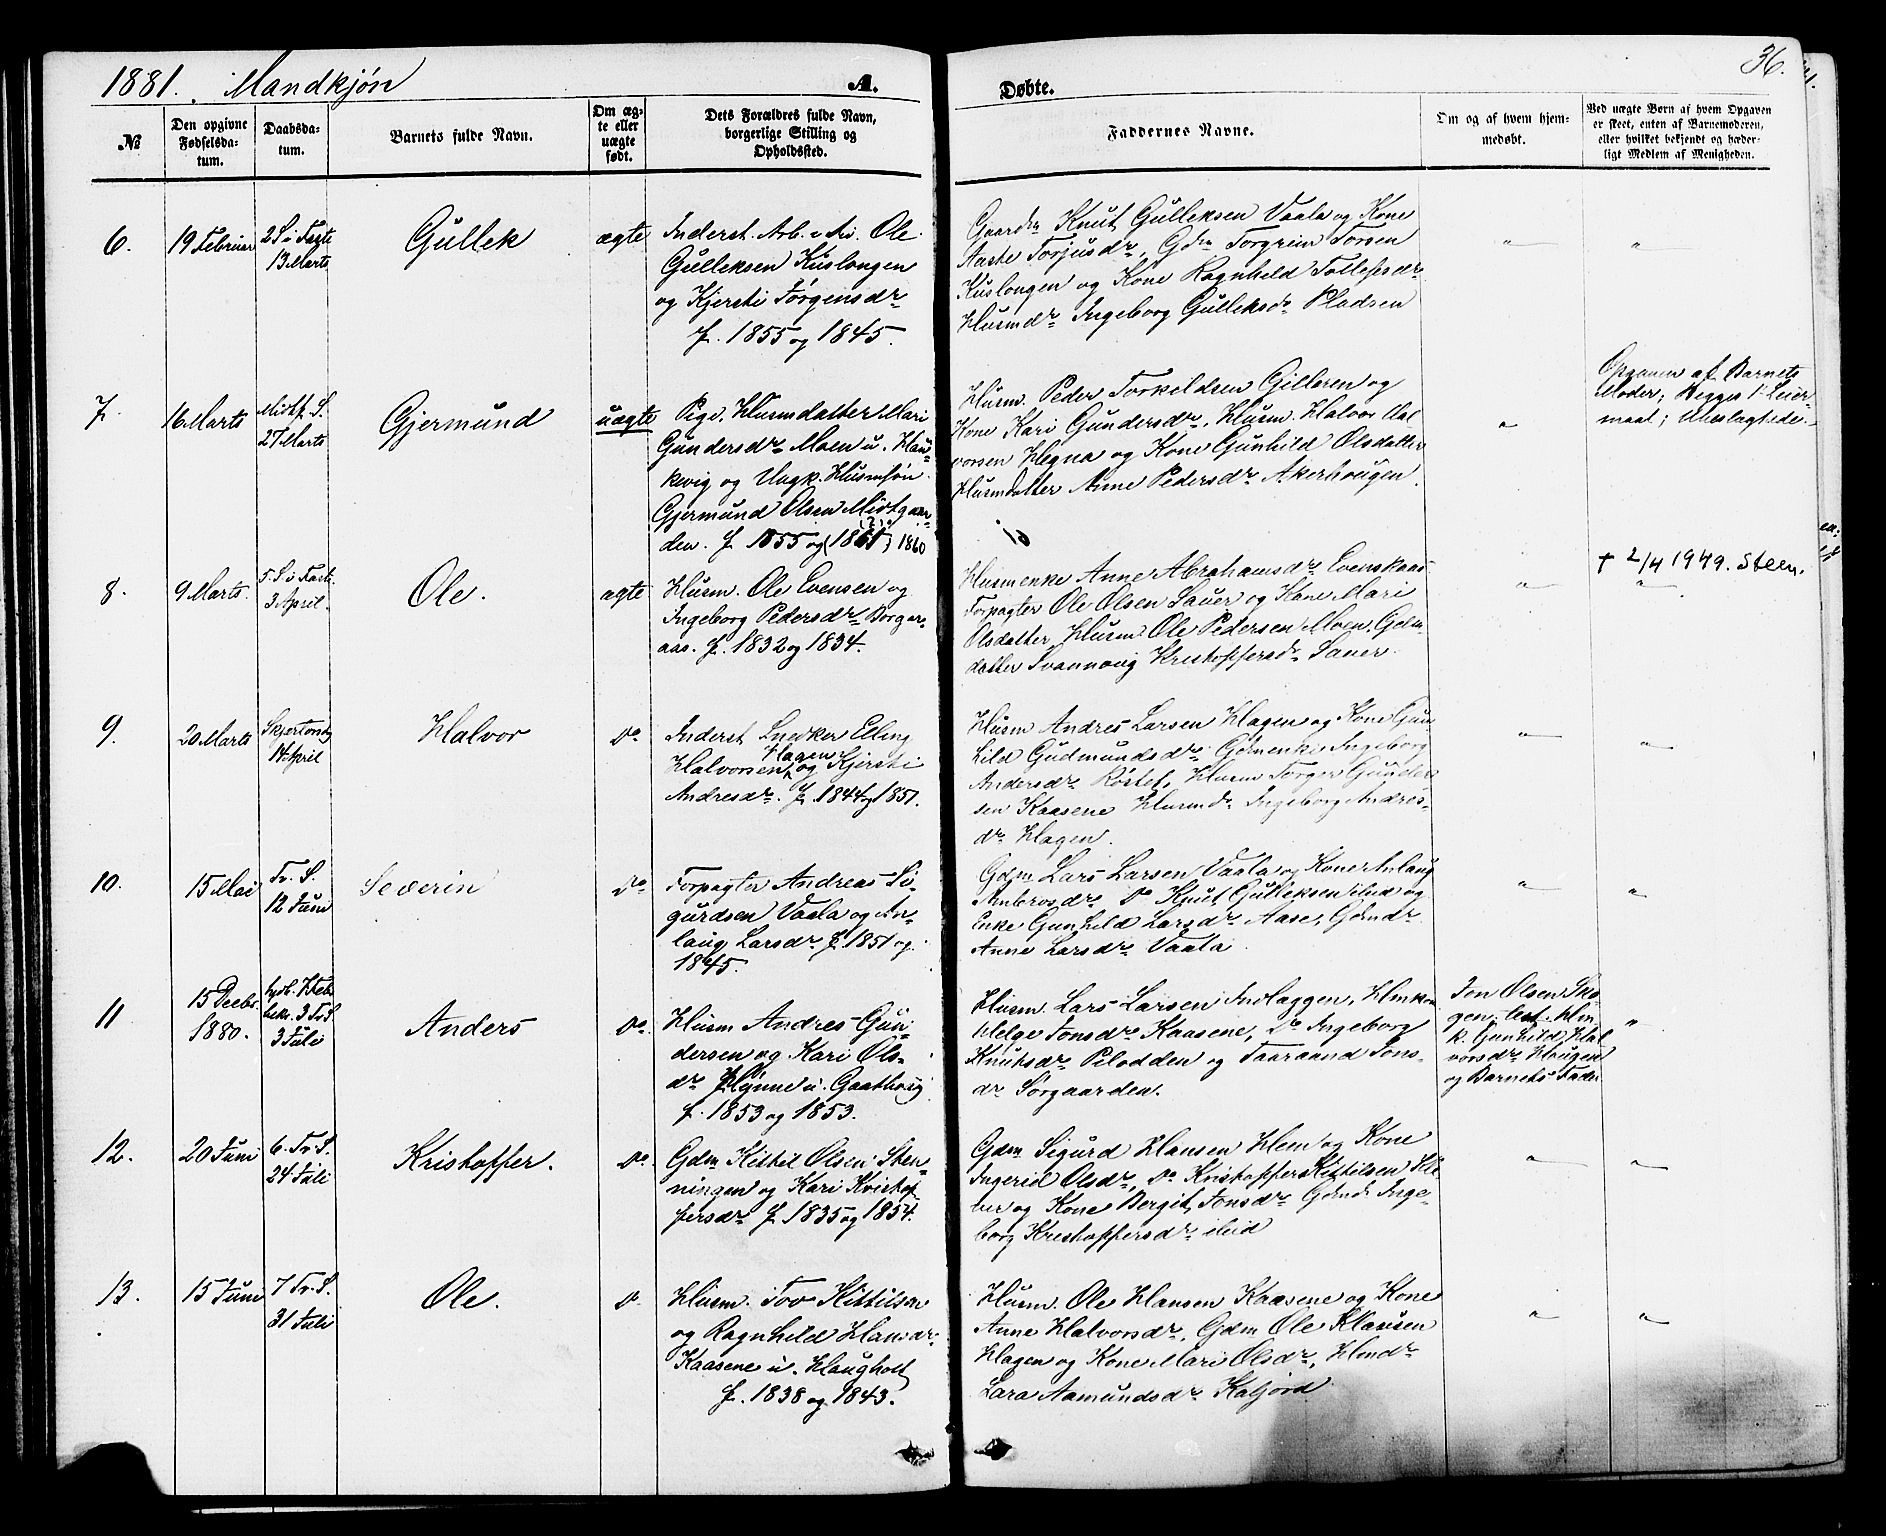 1881. Mandkjøn
A.
Døbte.
36.
№
Den opgivne Fødselsda-tum.
Daabsda-tum.
Barnets fulde Navn.
Om æg-te eller uægte født.
Dets Forældres fulde Navn, borgerlige Stilling og Opholdssted.
Faddernes Navne.
Om og af hvem hjem-medøbt.
Ved uægte Børn af hvem Opgaven er skeet, enten af Barnemoderen, eller hvilket bekjendt og hæder-ligt Medlem af Menigheden.
6.
19 Februar
2 S i Faste
13 Marts
Gullek
ægte
Inderst. Arb. Ole
Gulleksen Kuslongen
og Kjersti Jørgensdr
f. 1855 og 1845.
Gaardm Knut Gulleksen Vaala og Kone
Aaste Torjusdr, Gdm Torgrim Torsen
Kuslongen og Kone Ragnhild Tollefsdr
Husmdr Ingeborg Gulleksdr Pladsen
"
"
7.
16 Marts
Midtf. S.
27 Marts
Gjermund
uægte
Pige, Husmdatter Mari
Gundersdr Moen u. Hau-
kevig og Ungk. Husmsøn
Gjermund Olsen Midtgaar-
den. f. 1855 og (1861) (?) 1860
Husm. Peder Torkildsen Gilleren og
Kone Kari Gundersdr, Husm Halvor Hal
vorsen Hegna og Kone Gunhild Olsdatter
Husmdatter Anne Pedersdr Akerhougen.
"
Opgaven af Barnets
Moder; Begges 1ste Leier-
maal; Ubeslægtede.
† 2/4 1949. Steen.
8.
9 Marts.
5. S i Fast.
3 April.
Ole.
ægte
Husm. Ole Evensen og
Ingeborg Pedersdr Borger-
aas. f. 1832 og 1834.
Husmenke Anne Abrahamsdr Evenskaas
Forpagter Ole Olsen Sauer og Kone Mari
Olsdatter, Husm Ole Pedersen Moen, Gdm
datter Svannoug Kristoffersdr Sauer.
"
"
9.
20 Marts
Skjertorsdg
14 April
Halvor
Do
Inderst Snedker Elling
Halvorsen Hagen og Kjersti
Andresdr. f. 1844 og 1851.
Husm Andres Larsen Hagen og Kone Gun
hild Gudmundsdr Gdmenke Ingeborg
Andersdr Røstet, Husm Torger Gunder
sen Kaasene Husmdr Ingeborg Andres-
dr Hagen.
"
"
10.
15 Mai
Tr. S.
12 Juni
Severin
Do
Forpagter Andreas Si-
gurdsen Vaala og An-
laug Larsdr f. 1851 og
1845.
Gdm Lars Larsen Vaala og Kone Anlaug
Ambrosdr Do Knut Gulleksen ibid og
Enke Gunhild Larsdr Aase, Gdmdr
Anne Larsdr Vaala
"
"
11
15 Decbr.
1880.
hjdb. 7 Feb.
bekr. 3 Tr S
3 Juli
Anders
Do.
Husm Andres Gun
dersen og Kari Ols-
dr Hynne u. Gaathoug
f. 1853 og 1853.
Husm. Lars Larsen Indlaggen, Hmkon
Helge Jonsdr Kaasene, Do Ingeborg
Knutsdr Pelodden og Taaraand Jons-
dr Sørgaarden.
Jon Olsen Sko-
gen, test. Hm
k. Gunhild Hal
vorsdr Haugen
og Barnets Fader
"
12.
20 Juni
6. Tr. S.
24 Juli
Kristoffer.
Do.
Gdm Kittil Olsen Sten-
ningen og Kari Kristof-
fersdr f. 1835 og 1854.
Gdm Sigurd Hansen Hem og Kone
Ingerid Olsdr, Do Kristoffer Kittilsen
og Kone Bergit Jonsdr Gdmdr Inge-
borg Kristoffersdr ibid
"
"
13.
15 Juni
7 Tr. S.
31 Juli
Ole.
Do
Husm. Tov Kittilsen
og Ragnhild Hansdr
Kaasene u. Haugholt
f. 1838 og 1843.
Husm. Ole Hansen Kaasene og Kone
Anne Halvorsdr, Gdm Ole Klausen
Hagen og Kone Mari Olsdr, Hmdr
Lara Aamundsdr Kasjord
"
"